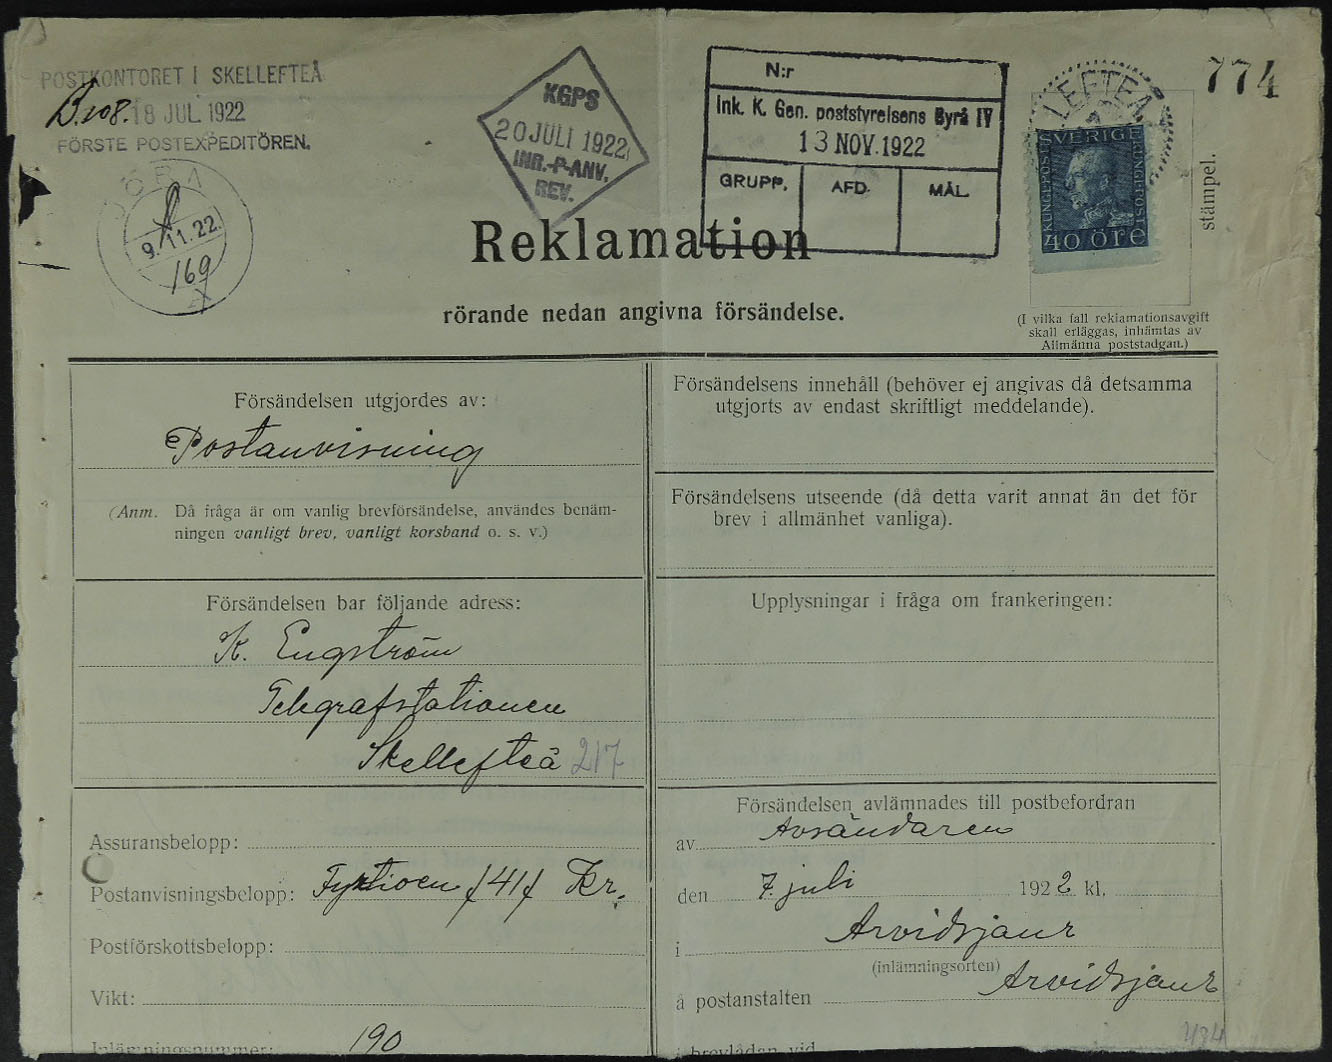 POSTKONTORET I SKELLEFTEÅ
B.108. 18 JUL 1922
FÖRSTE POSTEXPEDITÖREN.
9.11.22
169
KGPS
20 JULI 1922
INR.-P-ANV.
REV.
N:r
Ink. K. Gen. poststyrelsens Byrå IV
13 NOV. 1922
GRUPP. AFD. MÅL
LEFTEÅ
SVERIGE
KUNGL·POST
KUNGL·POST
40 öre
774
stämpel.
Reklamation
rörande nedan angivna försändelse.
(I vilka fall reklamationsavgift
skall erläggas, inhämtas av
Allmänna poststadgan.)
Försändelsen utgjordes av:
Postanvisning
(Anm. Då fråga är om vanlig brevförsändelse, användes benäm-
ningen vanligt brev, vanligt korsband o. s. v.)
Försändelsen bar följande adress:
K. Engström
Telegrafstationen
Skellefteå 217
Assuransbelopp:
Postanvisningsbelopp: Fyrtioen /41/ Kr.
Postförskottsbelopp:
Vikt:
Inlämningsnummer: 190
Försändelsens innehåll (behöver ej angivas då detsamma
utgjorts av endast skriftligt meddelande).
Försändelsens utseende (då detta varit annat än det för
brev i allmänhet vanliga).
Upplysningar i fråga om frankeringen:
Försändelsen avlämnades till postbefordran
av Avsändaren
den 7. juli 1922 kl.
i Arvidsjaur
(inlämningsorten)
å postanstalten Arvidsjaur
i brevlådan vid